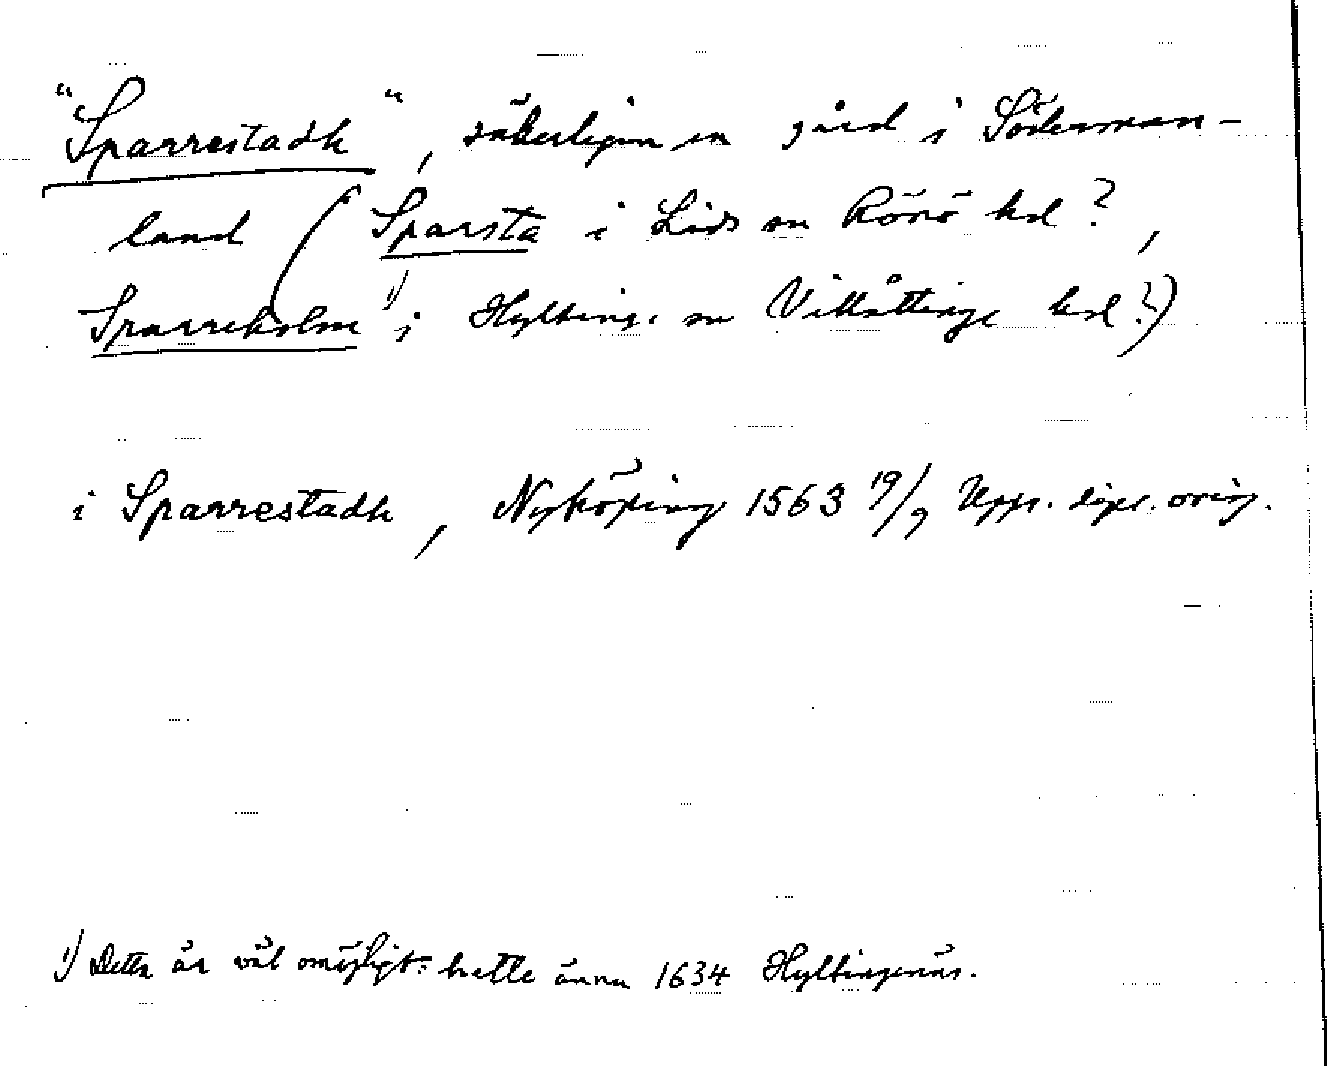 "Sparrestadh", säkerligen en gård i Söderman-
land (Sparsta i Lids sn Rönö hd?,
Sparreholm 1) i Hyltinge sn Villåttinge hd?)
i Sparrestadh, Nyköping 1563 19/9 Upps. dipl. orig.
1) Detta är väl omöjligt: hette ännu 1634 Hyltingenäs.